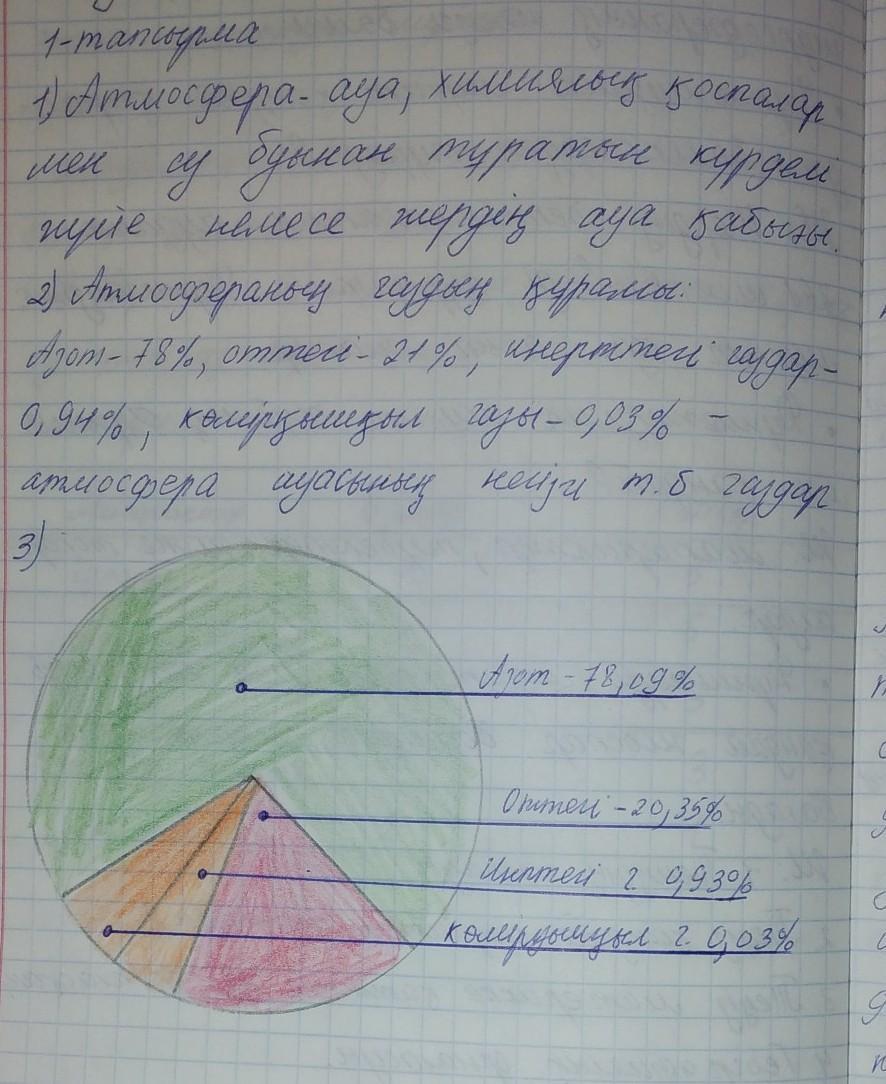 1-тапсырма
1) Атмосфера - ауа, химиялық қоспалар
мен су буынан тұратын күрделі
жүйе немесе жердің ауа қабығы.
2) Атмосфераның газдың құрамы:
Азот - 78%, оттегі - 21%, инерттегі газдар -
0,94%, көмірқышқыл газы - 0,03% -
атмосфера ауасының негізгі т.б газдар
3)
Азот - 78,09%
Оттегі - 20,35%
Инттегі г. 0,93%
көмірқышқыл г. 0,03%